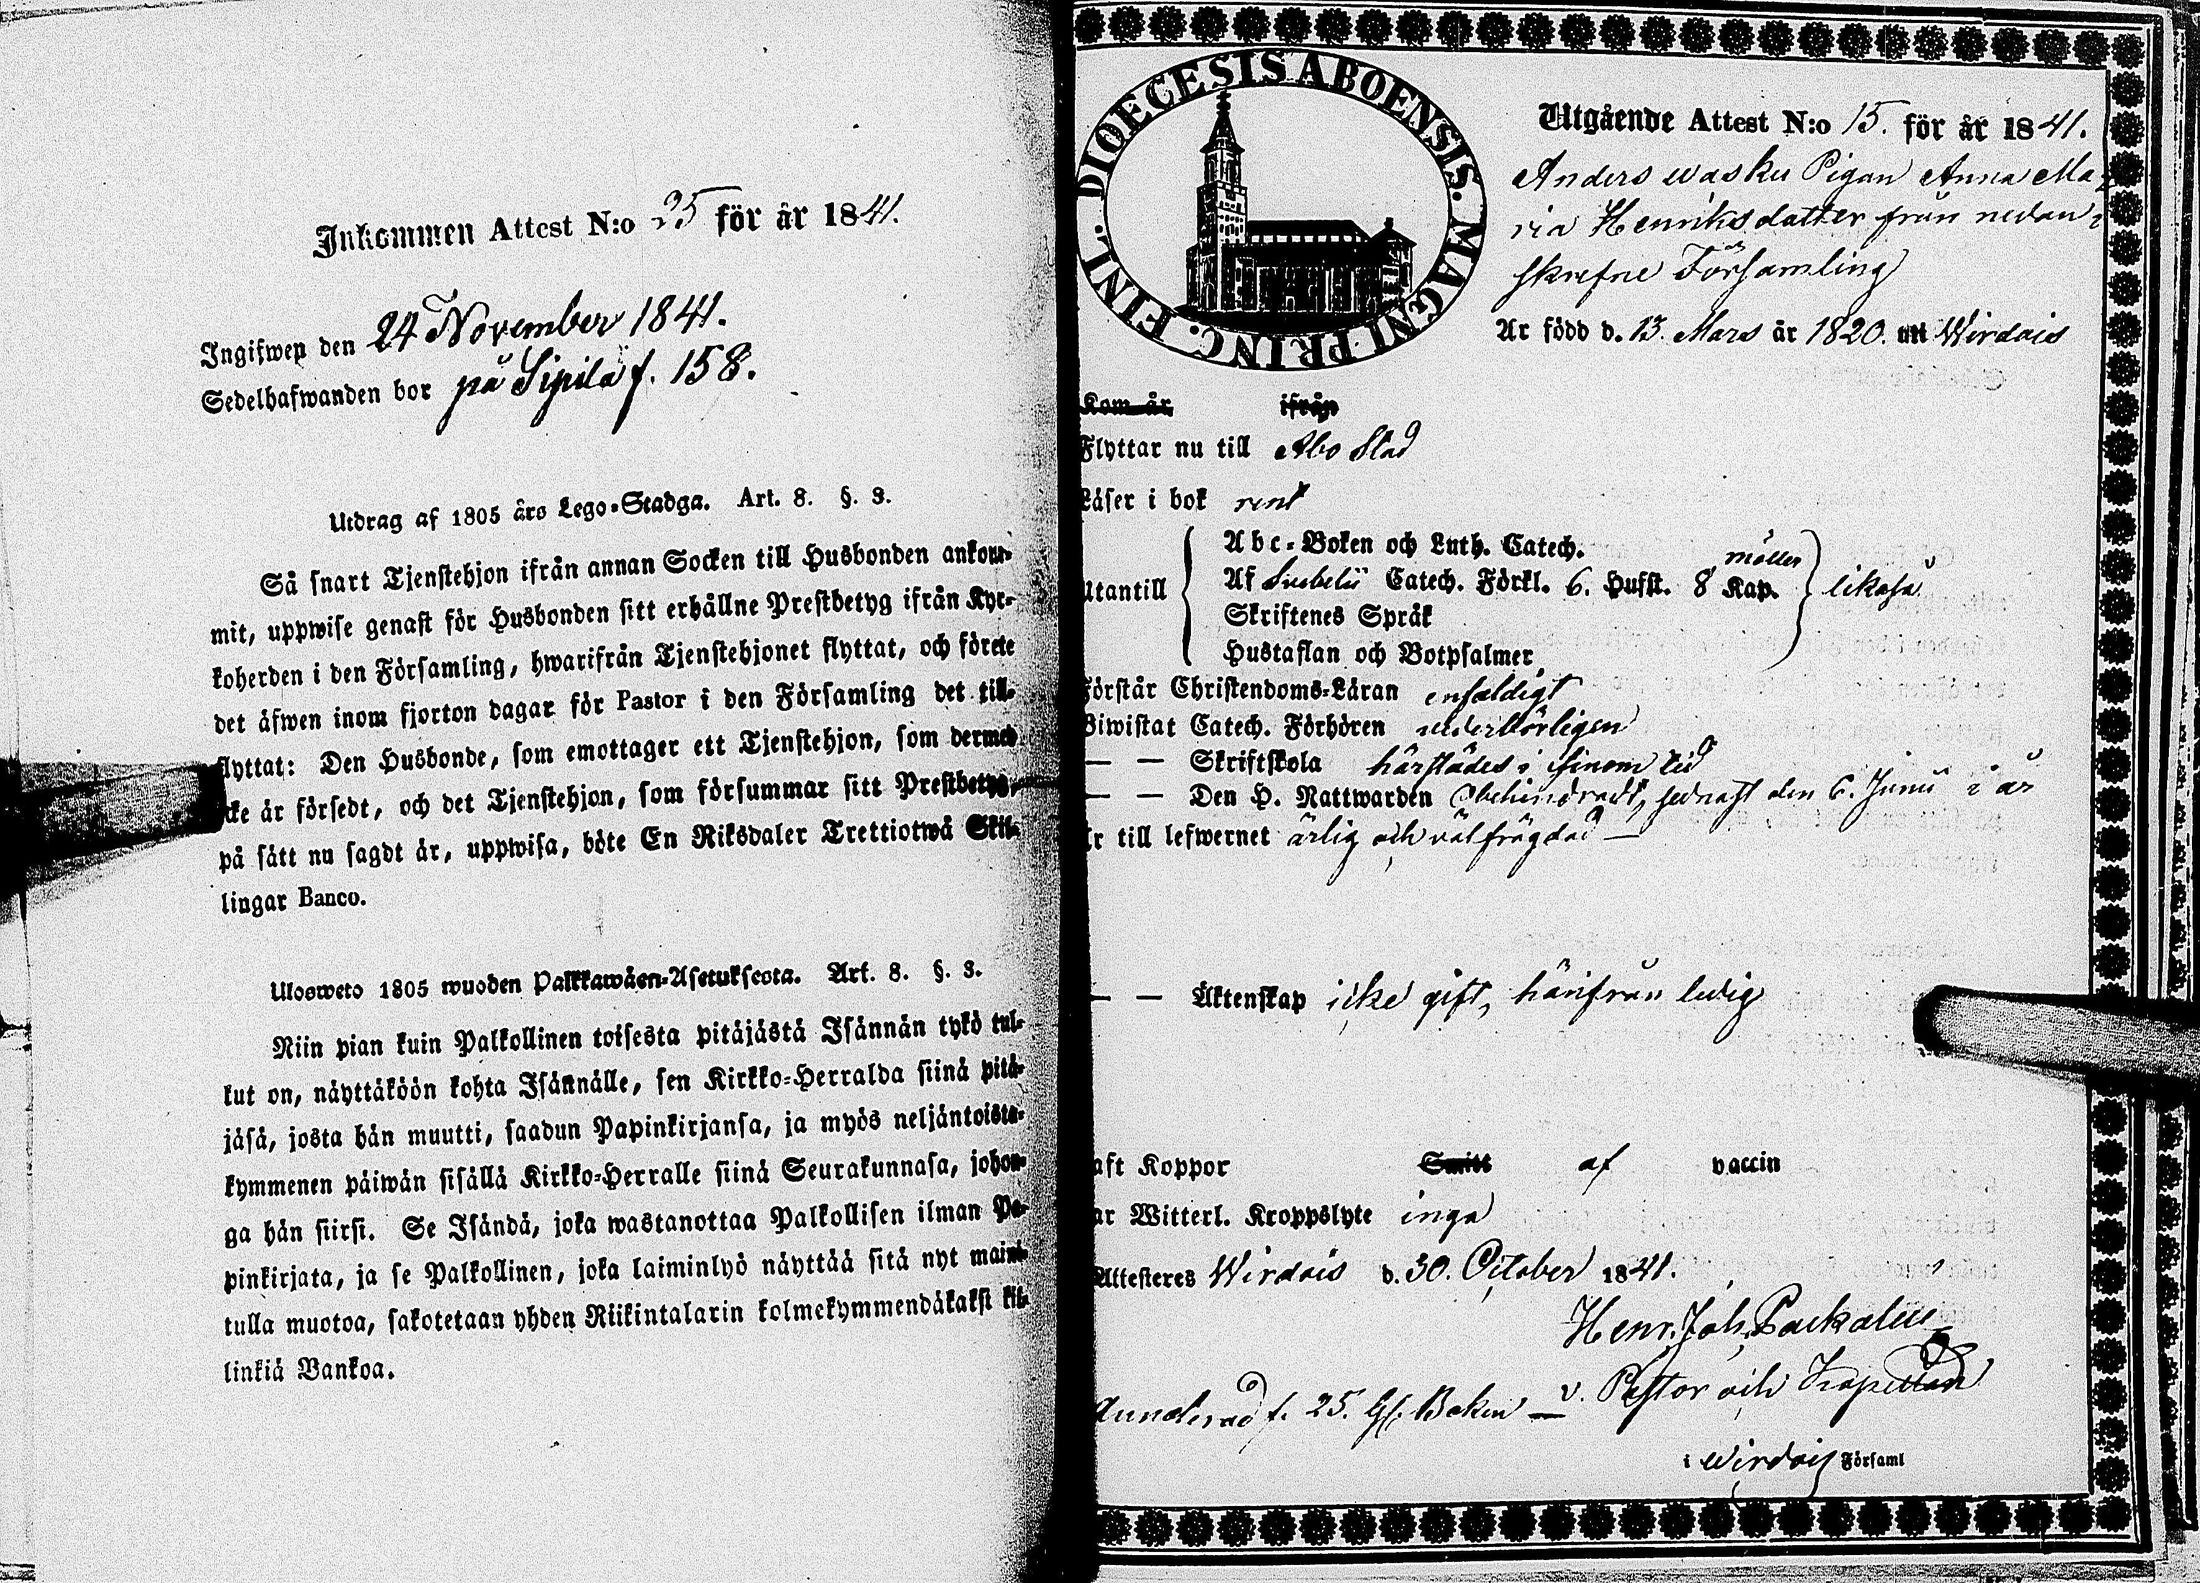 Inkommen Attest N:o 25 för år 1841.
Ingifwen den 24 November 1841.
Sedelhafwanden bor på Sipilä f. 158.
Utdrag af 1805 års Lego-Stadga. Art. 8. §. 3.
Så snart Tjenstehjon ifrån annan Socken till Husbonden ankom-
mit, uppwise genast för Husbonden sitt erhållne Prestbetyg ifrån Kyr-
koherden i den Församling, hwarifrån Tjenstehjonet flyttat, och förete
det äfwen inom fjorton dagar för Pastor i den Församling det till-
flyttat: Den Husbonde, som emottager ett Tjenstehjon, som dermed
icke är försedt, och det Tjenstehjon, som försummar sitt Prestbetyg,
på sätt nu sagdt är, uppwisa, böte En Riksdaler Trettiotwå Skil-
lingar Banco.
Ulosweto 1805 wuoden Palkkawäen-Asetuksesta. Art. 8. §. 3.
Niin pian kuin Palkollinen toisesta pitäjästä Isännän tykö tul-
kut on, näyttäköön kohta Isännälle, sen Kirkko-Herralda siinä pitä-
jäsä, josta hän muutti, saadun Papinkirjansa, ja myös neljäntoista-
kymmenen päiwän sisällä Kirkko-Herralle siinä Seurakunnasa, johon-
ga hän siirsi. Se Isändä, joka wastanottaa Palkollisen ilman Pa-
pinkirjata, ja se Palkollinen, joka laiminlyö näyttää sitä nyt maini-
tulla muotoa, sakotetaan yhden Riikintalarin kolmekymmendäkaksi kil-
linkiä Bankoa.
FINL. DIOECESIS ABOENSIS. MAGNI PRINC.
Utgående Attest N:o 15. för år 1841.
Anders wasku Pigan Anna Ma-
ria Henriksdatter från nedan-
skrefne Församling
Är född d. 13. Mars år 1820. uti Wirdois
Kom år ifrån
Flyttar nu till Åbo Stad
Läser i bok rent
Abc-Boken och Luth. Catech.
möller
Utantill Af Svebelii Catech. Förkl. 6. Hufst. 8 Kap. likaså
Skriftenes Språk
Hustaflan och Botpsalmer
Förstår Christendoms-Läran enfaldigt
Biwistat Catech. Förhören wederbörligen
— — Skriftskola härstädes i sinom tid
— — Den H. Nattwarden obehindradt, sednast den 6. Junii i år
Är till lefwernet ärlig och välfrägdad —
— — Äktenskap icke gift, härifrån ledig
aft Koppor Smitt af vaccin
ar Witterl. Kroppslyte inga
Attesteres Wirdois d. 30. October 1841.
Henr. Joh.
v. Pastor och Kapellan
f. 25. Boken —
i Wirdois Församl